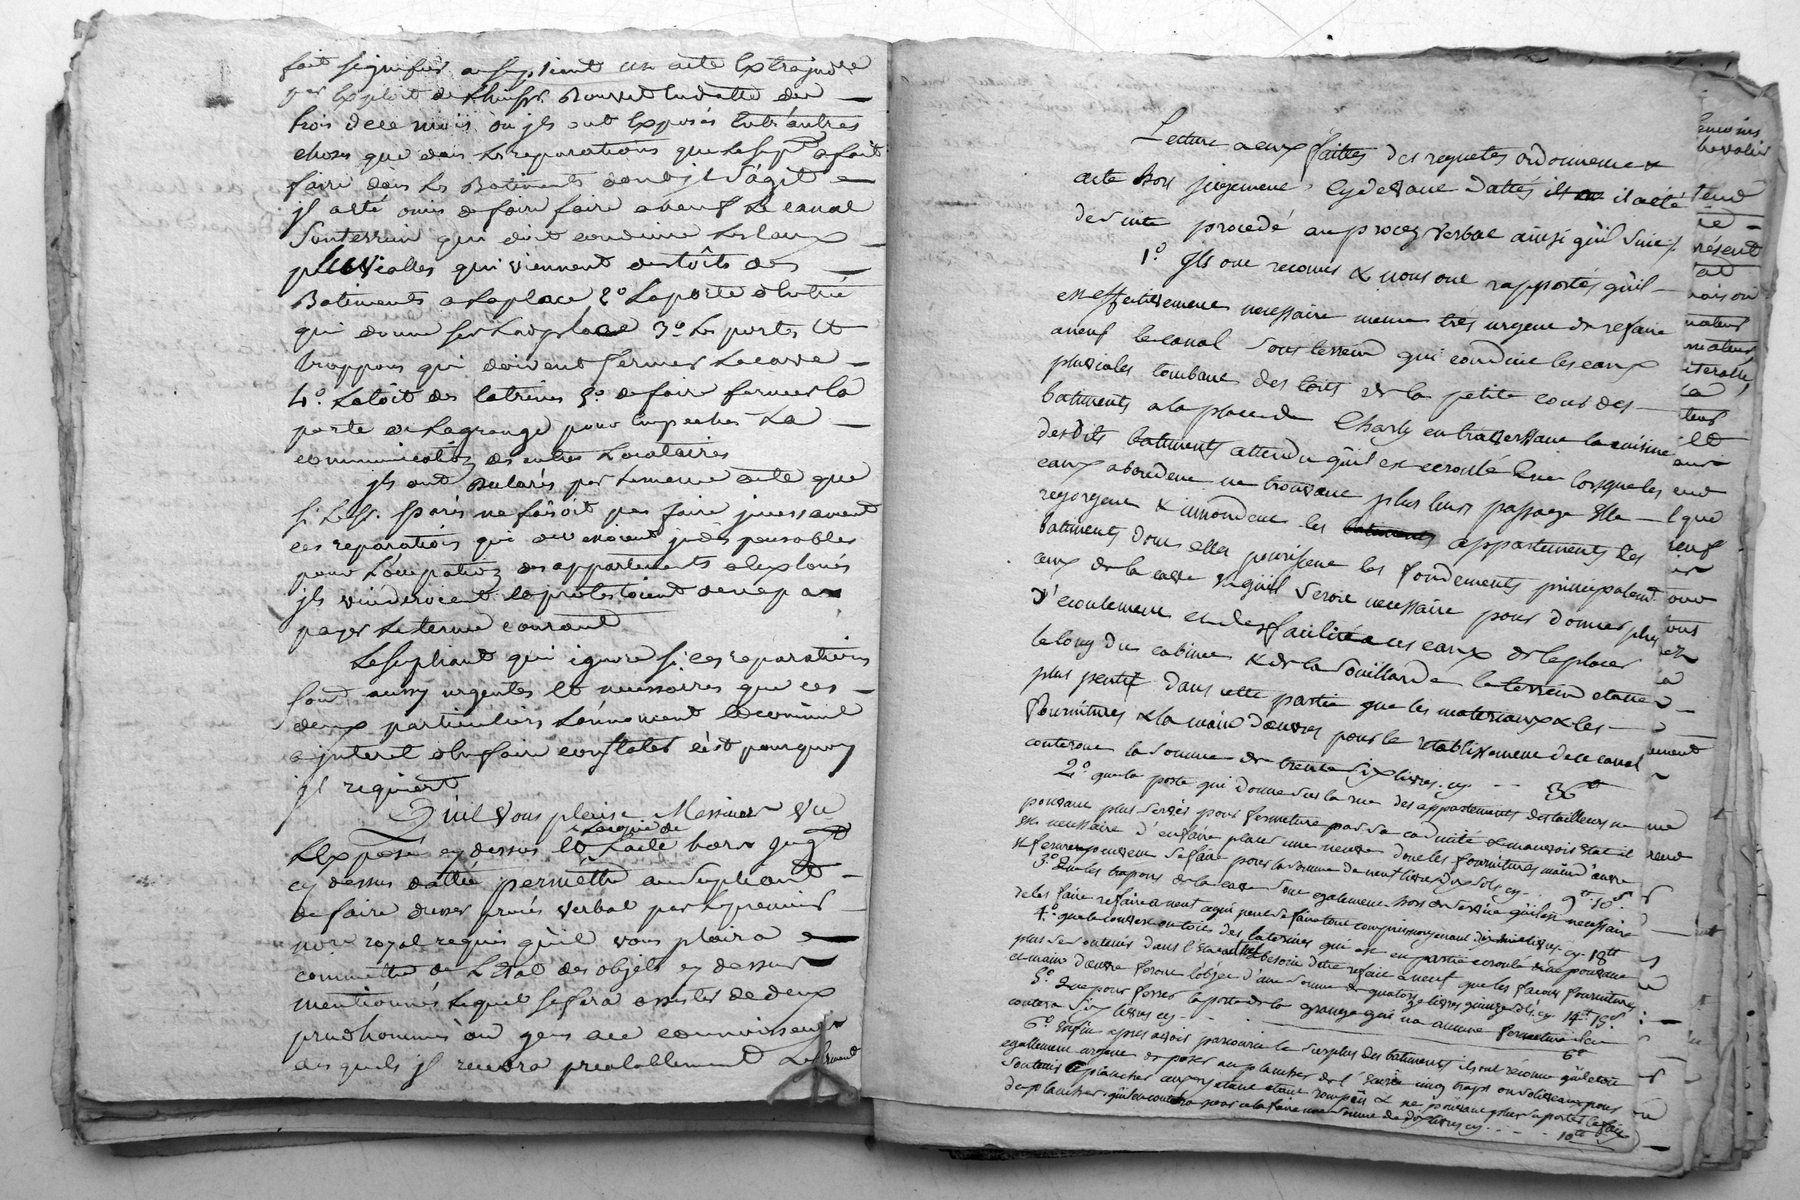 fait signifier au supliant un acte Extrajudre
par Exploit de l'huissr. Rouvet en datte des
trois de ce mois ou jls ont Exposés Entr'autres
choses que dans les reparations que le supt. a fait
faire dans les Batiments dont jl s'agit
jl a eté omis de faire faire a neuf le canal
Souterrain qui doit conduire les Eaux
pluvialles qui viennent des toits des
Batiments a la place 2o. La porte d'Entrée
qui donne sur lad. place 3o. les portes Et
trappons qui doivent fermer la cave
4o. Le toit des latrines 5o. de faire fermer la
porte de la grange pour Empecher la
communication des autres Locataires
jls ont Declarés par le meme acte que
si le sr. Paris ne faisoit pas faire jncessament
ces reparations qui devenoient jndispensables
pour L'occupation des appartements a Eux loués
jls viuderoient Et protestoient de ne pas
payer le terme courant
Le supliant qui ignore si ces reparations
sont aussy urgentes Et necessaires que ces
deux particuliers L'énnoncent Et comme il
a jnteret de les faire constater c'est pourquoy
jl requiert
Qu'il Vous plaise Messieurs Vu
L'Exposé cy dessus Et la copie de L'acte hors jugt.
cy dessus datté permettre au supliant
de faire dresser procés verbal par le premier
nore. royal requis qu'il vous plaira
commettre de L'Etat des objets cy dessus
mentionnés Lequel se fera assister de deux
prudhommes ou gens a ce connoisseurs
des quels jl recevra prealablement Le serment
Lecture a eux faittes des requetes ordonnence &
acte hors jugement cy devant dattés il a eté
de suite procedé au procez verbal ainsi qu'il suit
1o. Ils ont reconnus & nous ont rapportés qu'il
est effectivement necessaire meme trés urgent de refaire
a neuf le canal souterrein qui conduit les eaux
pluviales tombant des toits de la petite cour des
batiments a la place de Charly en traversant la cuisine
desdits batiments attendu qu'il est ecroulé & que lorsque les
eaux abondent ne trouvant plus leur passage elle
regorgent & innondent les appartements des
batiments dont elles pourissent les fondements principalemt.
ceux de la cave & qu'il seroit necessaire pour donner plus
d'ecoulement et de facilité a ces eaux de le placer
le long du cabinet & de la Souillarde le terrein etant
plus pentif dans cette partie que les materiaux & les
fournitures & la main d'oeuvre pour le retablissement de ce canal
couteront la somme de trente six livres cy - - 36tt
2o. que la porte qui donne sur la rue des appartements des tailleurs ne
pouvant plus servir pour fermeture par sa caducité & mauvois etat il
est necessaire d'en faire placer une neuve dont les fournitures main d'oeuvre
& ferrure peuvent se faire pour la somme de neuf livres dix sols cy - 9tt 10s.
3o. Que les trapons de la cave sont egalement hors de service qu'il est necessaire
de les faire refaire a neuf ce qui peut se faire tout compris moyenant dix huit livres cy 18tt
4o. que le couvert ou toit des laterines qui est en partie ecroulé & ne pouvant
plus se soutenir dans l'etat actuel besoin d'etre refait a neuf que les facons fournitures
et main d'oeuvre feront l'objet d'une somme de quatorze livres quinze sols cy 14tt 15s.
5o. Que pour ferrer la porte de la grange qui n'a aucune fermeture il en
coutera six livres cy - - 6tt
6o. Enfin apres avoir parcouru le surplus des batiments ils ont reconnu qu'il etoit
egallement urgent de poser au plancher de l'ecurie cinq traps ou soliveaux pour
soutenir le plancher ceux y etant etant rompus & ne pouvant plus suporter le faix
du plancher qu'il en coutera pour cela faire une somme de dix livres cy . . . . 10tt